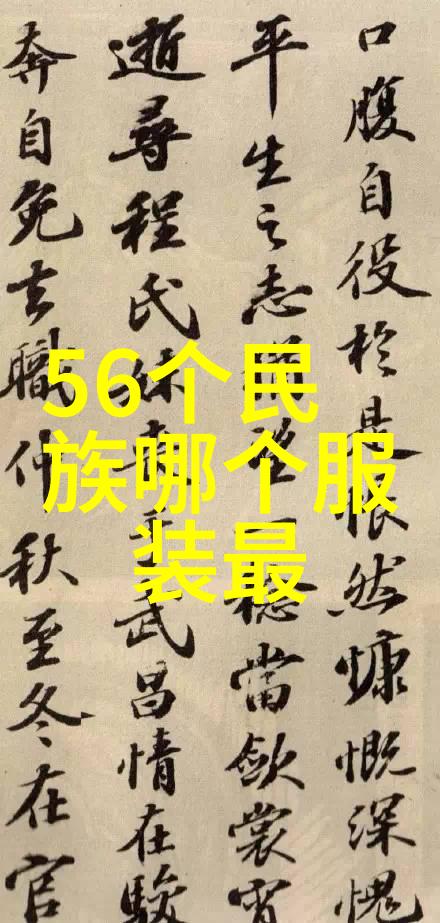 口腹自役於是悵然慷慨深愧
平生之志猶望一稔當歛裳宵
逝尋程氏妹喪于武昌情在駿
奔自免去職仲秋至冬在官
56个民
族哪个服
装最